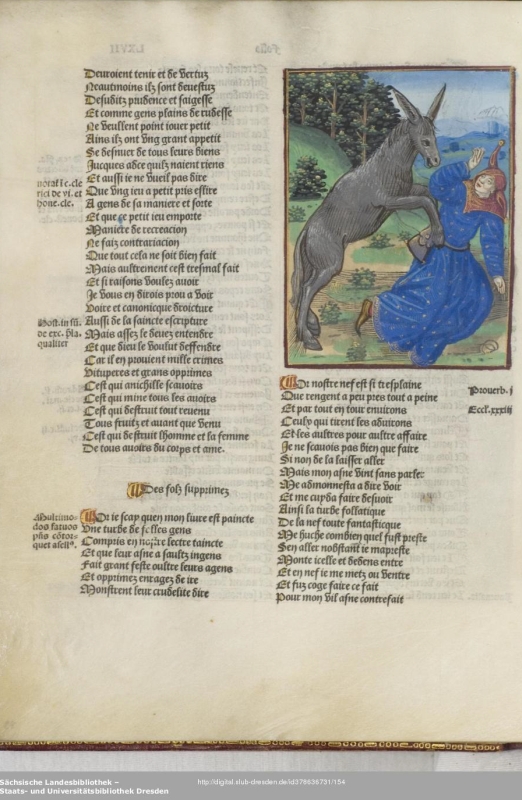 Deuroient tenir et de vertuz
Neautmoins ilz sont deuestuz
Desusditz prudence et saigesse
Et comme gens plains de rudesse
Ne veullent point iouer petit
Ains ilz ont vng grant appetit
Se desnuer de tous leurs biens
Iucques adce quilz naient riens
Et aussi ie ne vueil pas dire
Que vng ieu a petit pris eslire
A gens de sa maniere et forte
Et que ce petit ieu emporte
Maniere de recreacion
Ne faiz contrariacion
Que tout cela ne soit bien fait
Mais aultrement cest tresmal fait
Et si raisons voulez auoir
Je vous en dirois prou a voir
Voire et canonicque droicture
Aussi de la saincte escripture
Mais assez le deuez entendre
Et que dieu le voulut deffendre
Car il en prouient mille crimes
Vituperes et grans opprimes
Cest qui anichille scauoirs
Cest qui mine tous les auoirs
Cest qui destruit tout reuenu
Tous fruitz et auant que venu
Cest qui destruit lhomme et la femme
De tous auoirs du corps et ame.
nota l.c.cle
rici de vi. et
hone. cle.
Host. in sū.
de exc. pla.
qualiter
Des folz supprimez
Or ie scay quen mon liure est paincte
Vne turbe de folles gens
Compris en nostre lectre taincte
Et que leur asne a saultz ingens
Fait grant feste oultre leurs agens
Et opprimez enragez de ire
Monstrent leur crudelite dire
Multimo-
dos fatuos
phs cōtor-
quet asell⁹.
Or nostre nef est si tresplaine
Que rengent a peu pres tout a peine
Et par tout en tour enuirons
Ceulx qui tirent les abuirons
Et les aultres pour aultre affaire
Je ne scauois pas bien que faire
Si non de la laisser aller
Mais mon asne vint sans parler
Me admonnesta a dire voir
Et me cuyda faire desuoir
Ainsi la turbe follatique
De la nef toute fantasticque
Me huche combien quel fust preste
Sen aller nobstant ie mapreste
Monte icelle et dedens entre
Et en nef ie me metz ou ventre
Et fuz coge faire ce fait
Pour mon vil asne contrefait
Prouerb. j
Eccl. xxxiij
Sächsische Landesbibliothek –
Staats- und Universitätsbibliothek Dresden
http://digital.slub-dresden.de/id378636731/154